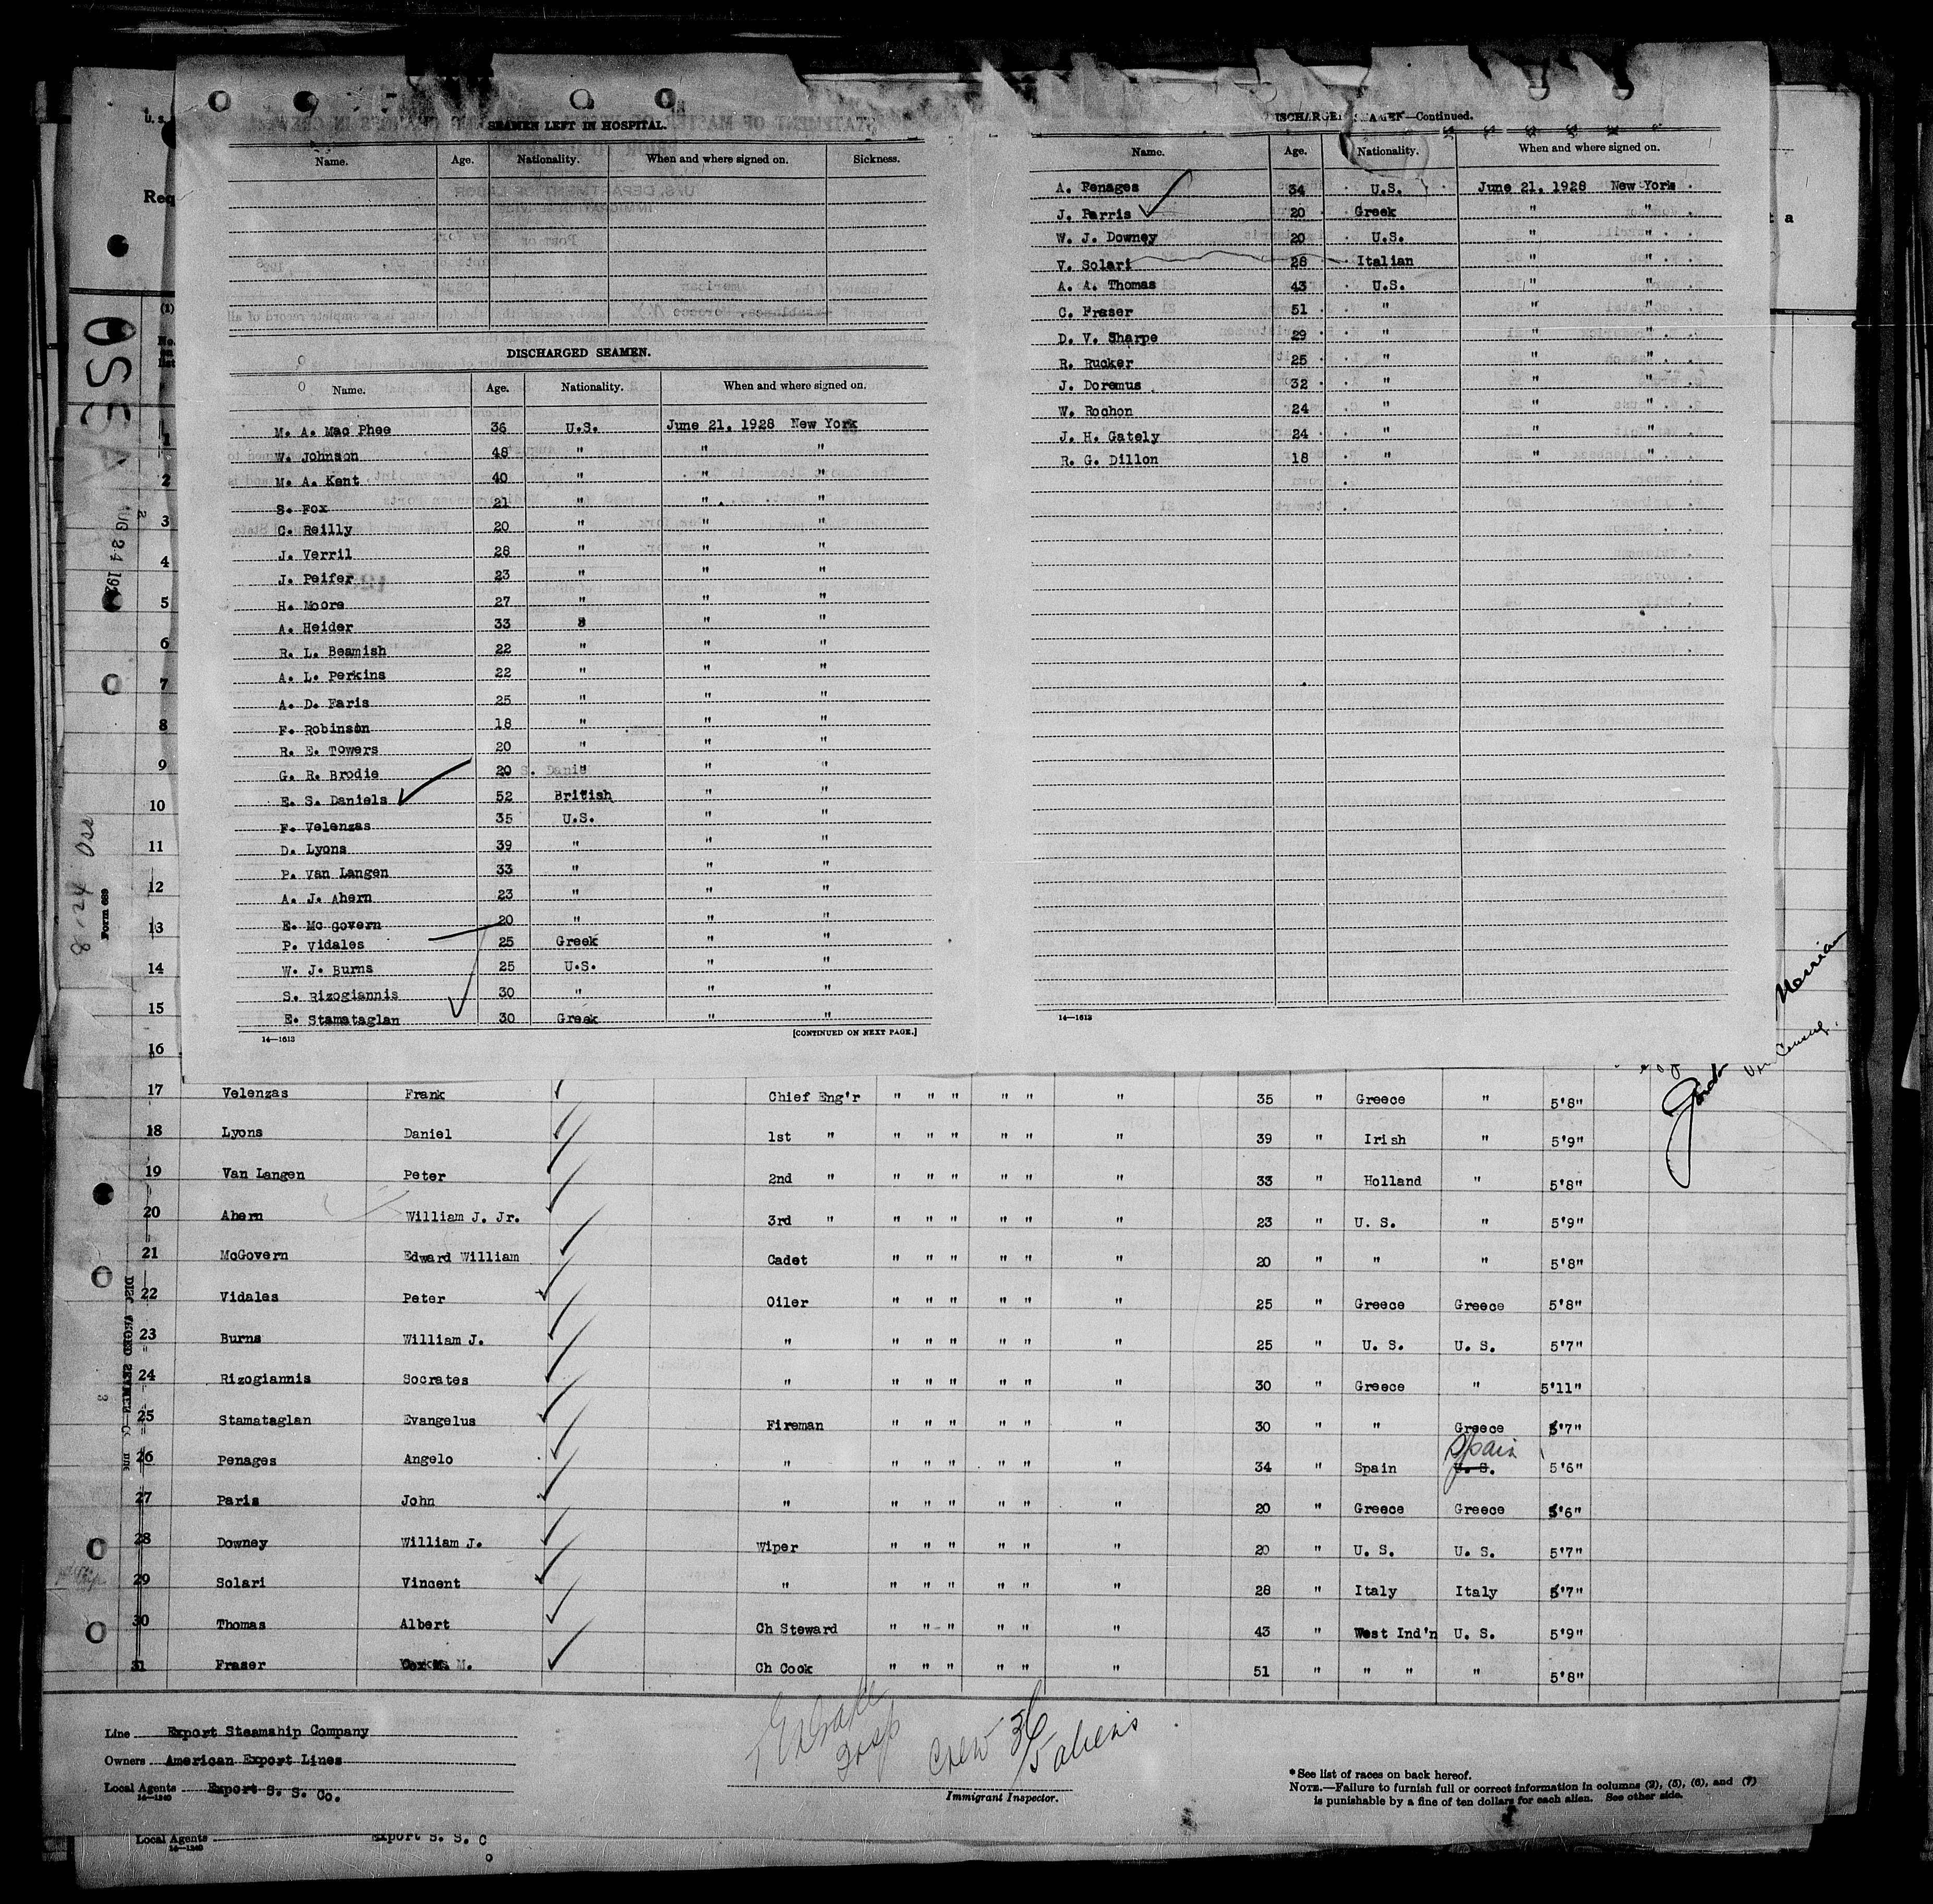 SEAMEN LEFT IN HOSPITAL.
Name. Age. Nationality. When and where signed on. Sickness.
DISCHARGED SEAMEN.
Name. Age. Nationality. When and where signed on.
M. A. Mac Phee 36 U.S. June 21, 1928 New York
W. Johnson 48 " " "
M. A. Kent 40 " " "
S. Fox 21 " " "
C. Reilly 20 " " "
J. Verril 28 " " "
J. Peifer 23 " " "
H. Moore 27 " " "
A. Heider 33 " "
R. L. Beamish 22 " " "
A. L. Perkins 22 " " "
A. D. Faris 25 " " "
F. Robinson 18 " " "
R. E. Towers 20 " " "
G. R. Brodie 20 " " "
E. S. Daniels 52 British " "
F. Velenzas 35 U.S. " "
D. Lyons 39 " " "
P. Van Langen 33 " " "
A. J. Ahern 23 " " "
E. Mc Govern 20 " " "
P. Vidales 25 Greek " "
W. J. Burns 25 U.S. " "
S. Rizogiannis 30 " " "
E. Stamataglan 30 Greek " "
14—1613 [CONTINUED ON NEXT PAGE.]
DISCHARGED SEAMEN—Continued.
Name. Age. Nationality. When and where signed on.
A. Penages 34 U.S. June 21, 1928 New York
J. Parris 20 Greek " "
W. J. Downey 20 U.S. " "
V. Solari 28 Italian " "
A. A. Thomas 43 U.S. " "
C. Fraser 51 " " "
D. V. Sharpe 29 " " "
R. Rucker 25 " " "
J. Doremus 32 " " "
W. Rochon 24 " " "
J. H. Gately 24 " " "
R. G. Dillon 18 " " "
14—1613
U. S.
Req
(1)
1
2
3
4
5
6
7
8
9
10
11
12
13
14
15
16
AUG 24 192
8-24
Form 689
17 Velenzas Frank Chief Eng'r " " " " " " 35 " Greece " 5'8"
18 Lyons Daniel 1st " " " " " " " 39 " Irish " 5'9"
19 Van Langen Peter 2nd " " " " " " " 33 " Holland " 5'8"
20 Ahern William J. Jr. 3rd " " " " " " " 23 " U. S. " 5'9"
21 McGovern Edward William Cadet " " " " " " 20 " " " 5'8"
22 Vidales Peter Oiler " " " " " " 25 " Greece Greece 5'8"
23 Burns William J. " " " " " " " 25 " U. S. U. S. 5'7"
24 Rizogiannis Socrates " " " " " " " 30 " Greece " 5'11"
25 Stamataglan Evangelus Fireman " " " " " " 30 " " Greece 5'7"
Spain
26 Penages Angelo " " " " " " " 34 " Spain U. S. 5'6"
27 Paris John " " " " " " " 20 " Greece Greece 5'6"
28 Downey William J. Wiper " " " " " " 20 " U. S. U. S. 5'7"
29 Solari Vincent " " " " " " " 28 " Italy Italy 5'7"
30 Thomas Albert Ch Steward " " " " " " 43 " West Ind'n U. S. 5'9"
31 Fraser M. Ch Cook " " " " " " 51 " " " " 5'8"
Line Export Steamship Company
Owners American Export Lines
Local Agents Export S. S. Co.
14—1240
Crew 36
5 aliens
Immigrant Inspector.
*See list of races on back hereof.
NOTE.—Failure to furnish full or correct information in columns (2), (5), (6), and (7)
is punishable by a fine of ten dollars for each alien. See other side.
Local Agents Export S. S. C
14—1240